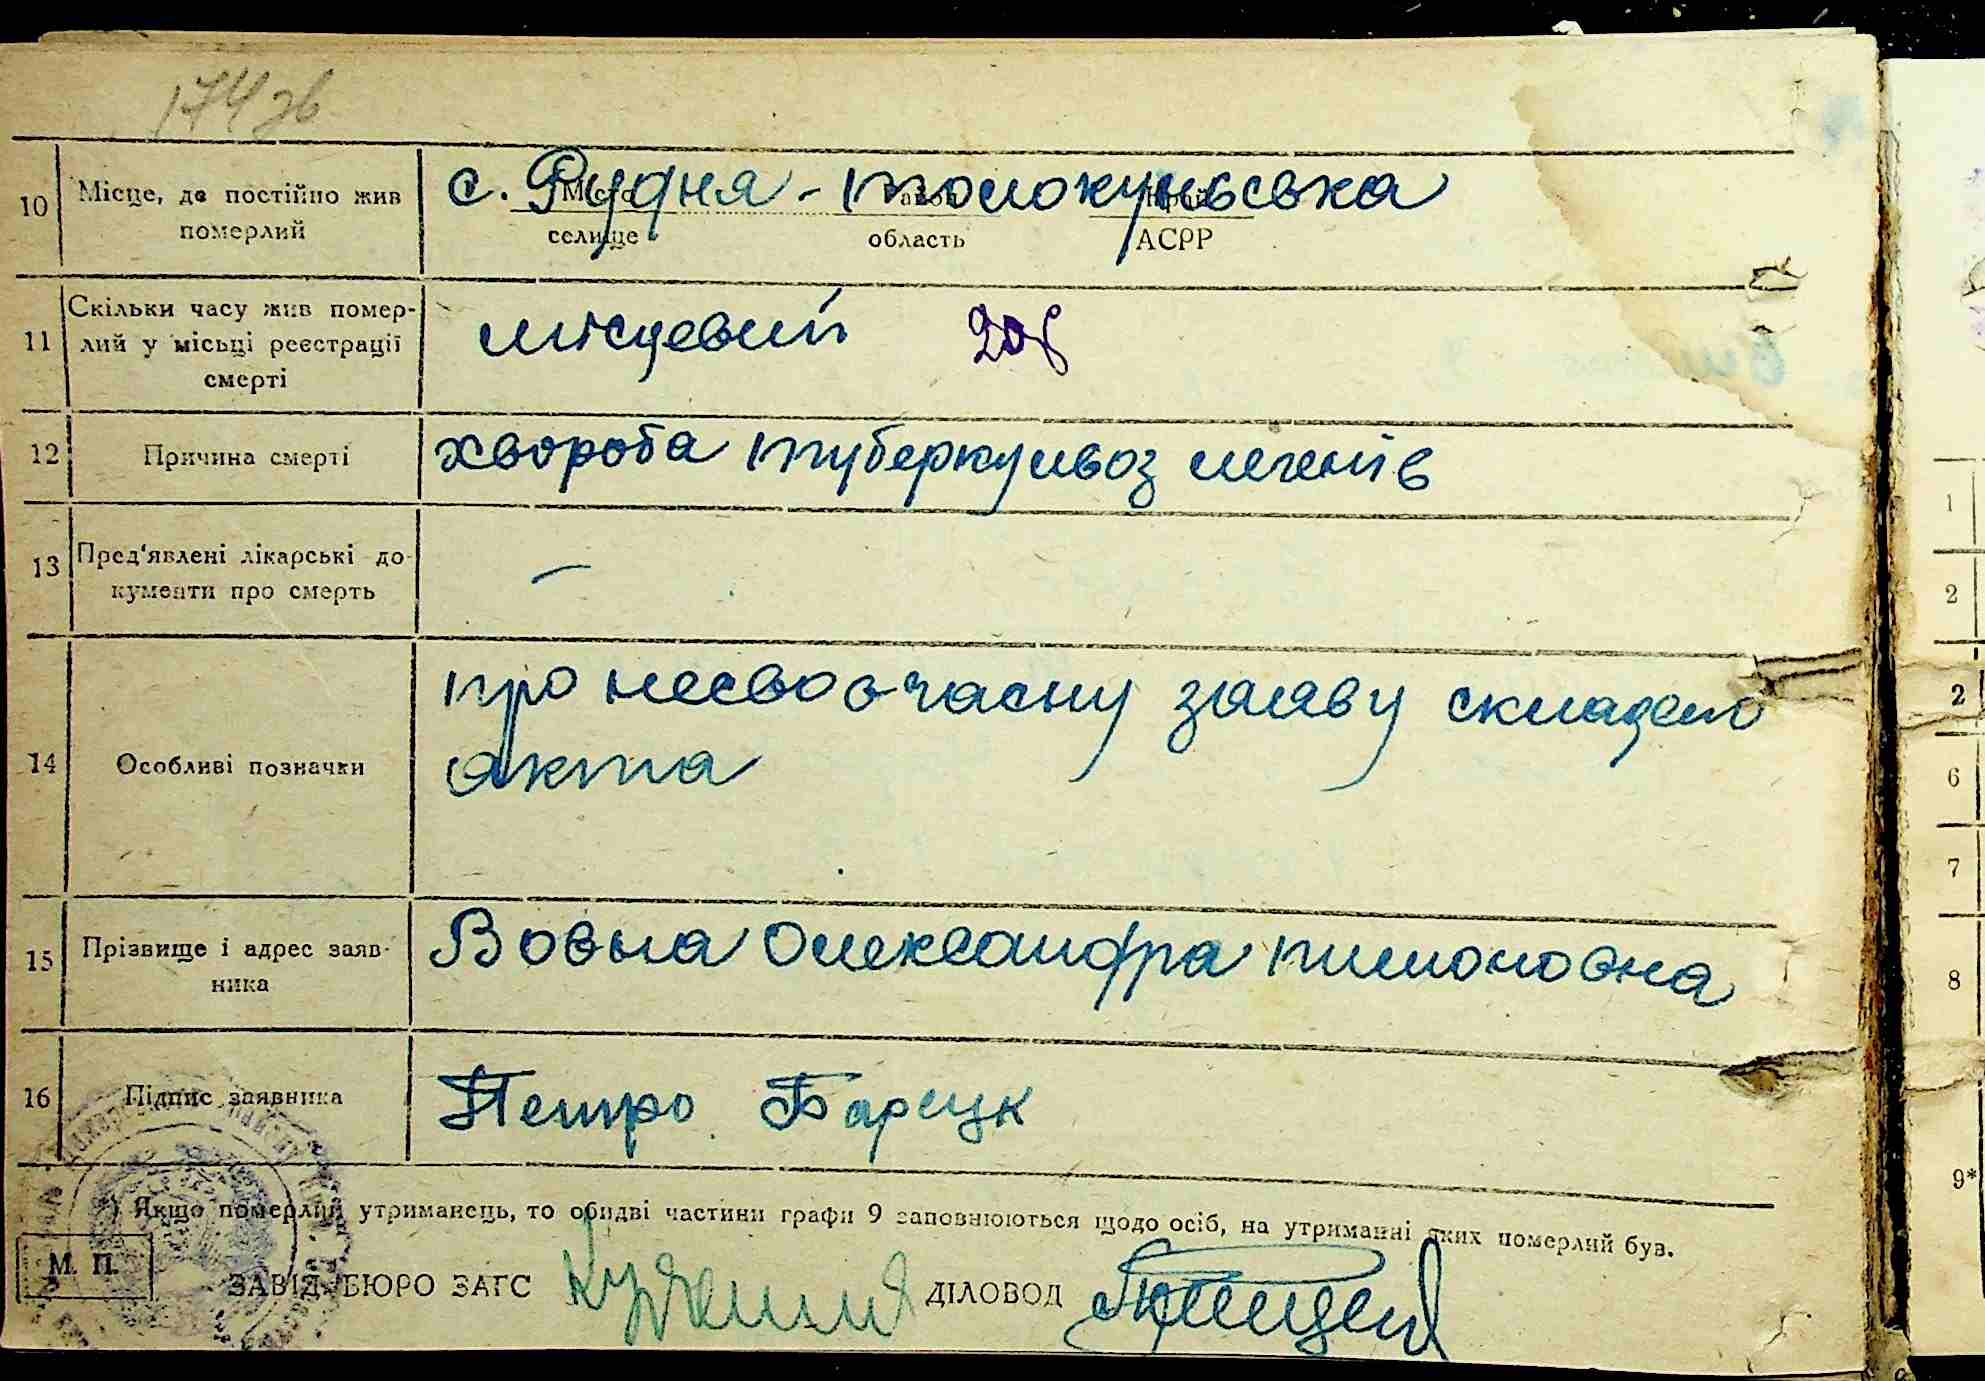 174зв
10 Місце, де постійно жив
померлий
с. Рудня - толокуньська
селище область АСРР
11 Скільки часу жив помер-
лий у місьці реєстрації
смерті
місцевий
12 Причина смерті
хвороба туберкульоз легенів
13 Пред'явлені лікарські до-
кументи про смерть
—
14 Особливі позначки
про несвоочасну заяву складено
акта
15 Прізвище і адрес заяв-
ника
Вовна Олександра пимоновна
16 Підпис заявника
Петро
Якщо померлий утриманець, то обидві частини графи 9 заповнюються щодо осіб, на утриманні яких померлий був.
М. П.
ЗАВІД. БЮРО ЗАГС ДІЛОВОД
1
2
2
6
7
8
9*